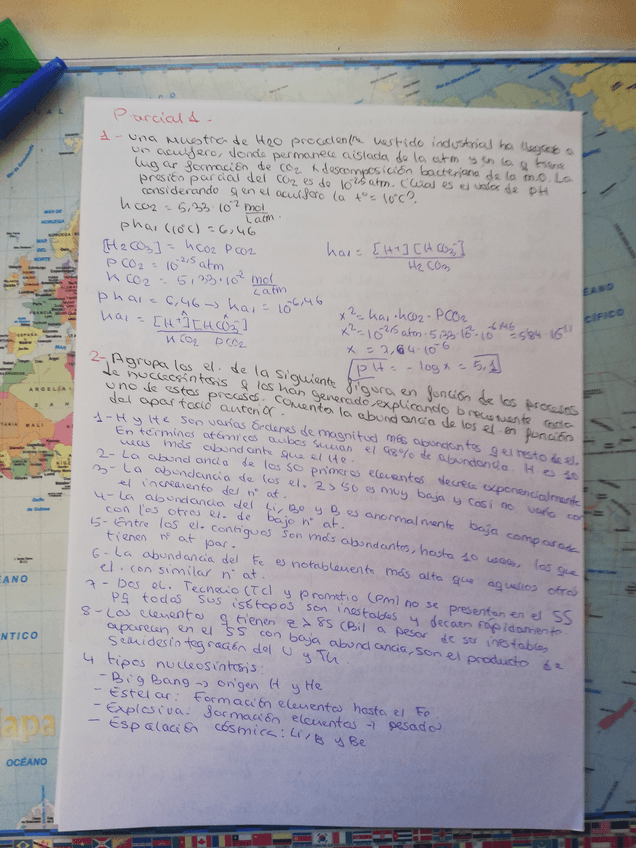 Parcial 1.
1- Una muestra de H2O procedente vertido industrial ha llegado a
un acuífero, donde permanece aislada de la atm y en la q tiene
lugar formación de CO2 x descomposición bacteriana de la m.O. La
presión parcial del CO2 es de 10^-2,5 atm. ¿Cual es el valor de pH
considerando q en el acuífero la tº = 10ºC?
hCO2 = 5,33·10^-2 mol/L atm.
pka1 (10ºC) = 6,46
[H2CO3] = hCO2 PCO2
ka1 = [H+][HCO3-] / H2CO3
PCO2 = 10^-2,5 atm
hCO2 = 5,33·10^-2 mol/L atm
pka1 = 6,46 → ka1 = 10^-6,46
ka1 = [H+][HCO3-] / hCO2 PCO2
x² = ka1·hCO2·PCO2
x² = 10^-2,5 atm·5,33·10^-2·10^-6,46 = 5,84·10^-11
x = 7,64·10^-6
pH = -log x = 5,1
2- Agrupa los el. de la siguiente figura en función de los procesos
de nucleosíntesis q los han generado, explicando brevemente cada
uno de estos procesos. Comenta la abundancia de los el. en función
del apartado anterior.
1- H y He son varias órdenes de magnitud más abundantes q el resto de el.
En términos atómicos ambos suman el 98% de abundancia. H es 10
veces más abundante que el He.
2- La abundancia de los 50 primeros elementos decrece exponencialmente
3- La abundancia de los el. Z>50 es muy baja y casi no varía con
el incremento del nº at.
4- La abundancia del Li, Be y B es anormalmente baja comparada
con los otros el. de bajo nº at.
5- Entre los el. contiguos son más abundantes, hasta 10 veces, los que
tienen nº at par.
6- La abundancia del Fe es notablemente más alta que aquellos otros
el. con similar nº at.
7- Dos el. Tecnecio (Tc) y prometio (Pm) no se presentan en el SS
Pq todos sus isótopos son inestables y decaen rápidamente
8- Los elementos q tienen Z>85 (Bi) a pesar de ser inestables
aparecen en el SS con baja abundancia, son el producto de
semidesintegración del U y Th.
4 tipos nucleosíntesis:
- Big Bang → origen H y He
- Estelar: Formación elementos hasta el Fe
- Explosiva: formación elementos + pesados
- Espalación cósmica: Li, B y Be
MAR DE
NORUEGA
ARGELIA
OCÉANO
ATLÁNTICO
OCÉANO
PACÍFICO
Mapa
OCÉANO